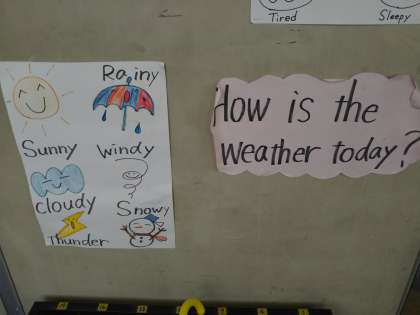 Tired
Sleepy
Rainy
Sunny
Windy
Cloudy
Snowy
Thunder
How is the
weather today?